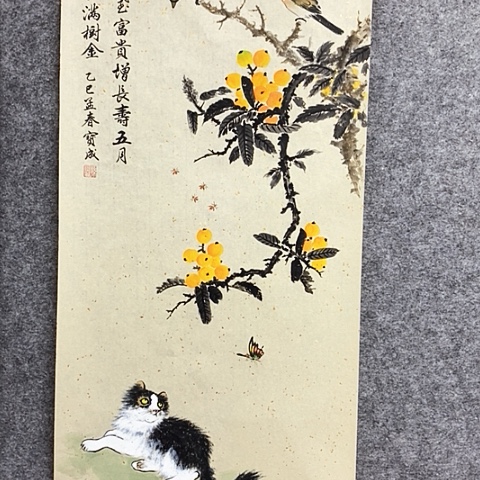 富貴增長壽五月
滿樹金 乙巳孟春寶成